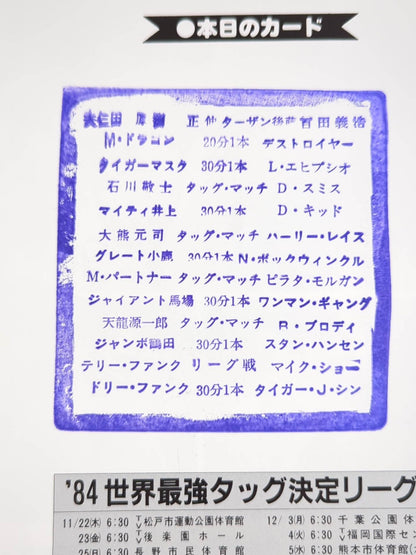 ●本日のカード
大仁田 厚 正伸 ターザン後藤 冨田義浩
M・ドラゴン 20分1本 デストロイヤー
タイガーマスク 30分1本 L・エヒプシオ
石川敬士 タッグ・マッチ D・スミス
マイティ井上 30分1本 D・キッド
大熊元司 タッグ・マッチ ハーリー・レイス
グレート小鹿 30分1本 N・ボックウィンクル
M・パートナー タッグ・マッチ ピラタ・モルガン
ジャイアント馬場 30分1本 ワンマン・ギャング
天龍源一郎 タッグ・マッチ B・ブロディ
ジャンボ鶴田 30分1本 スタン・ハンセン
テリー・ファンク リーグ戦 マイク・ショー
ドリー・ファンク 30分1本 タイガー・J・シン
'84世界最強タッグ決定リーグ
11/22㈭ 6:30 TV松戸市運動公園体育館 12/3㈪ 6:30 千葉公園体
23㈮ 6:30 後楽園ホール 4㈫ 6:30 TV福岡国際セ
25㈰ 6:30 長野市民体育館 5㈬ 6:30 熊本市体育館